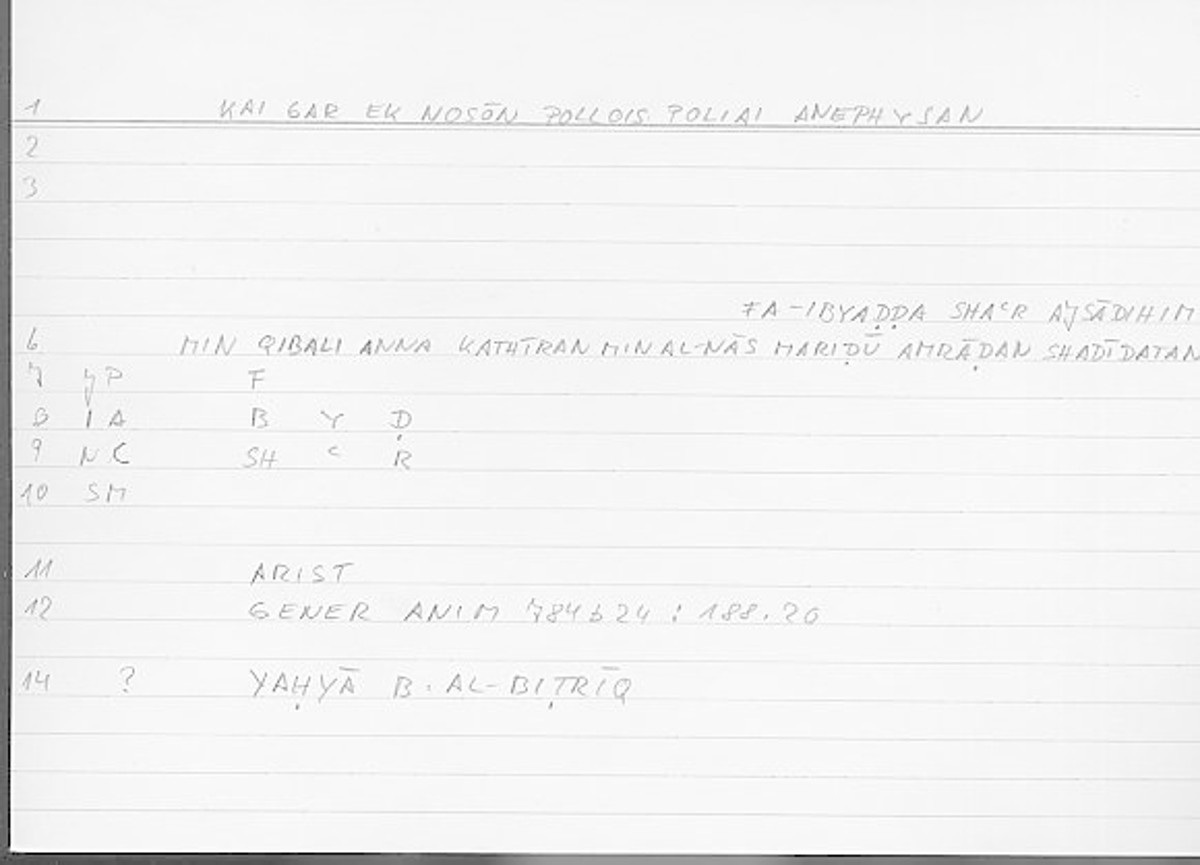 1 KAI GAR EK NOSŌN POLLOIS POLIAI ANEPHYSAN
2
3
FA-IBYAḌḌA SHAʿR AJSĀDIHIM
6 MIN QIBALI ANNA KATHĪRAN MIN AL-NĀS MARIḌŪ AMRĀḌAN SHADĪDATAN
7 JP F
8 IA B Y Ḍ
9 NC SH ʿ R
10 SM
11 ARIST
12 GENER ANIM 784b24 : 188.20
14 ? YAḤYĀ B. AL-BIṬRĪQ